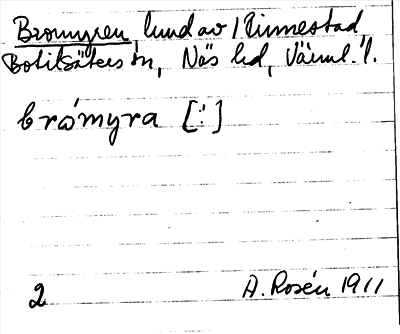 Bromyren, lund av Finnestad,
Botilsäters sn, Näs hd, Värml. l.
brómyra [:]
2 A. Rosén 1911